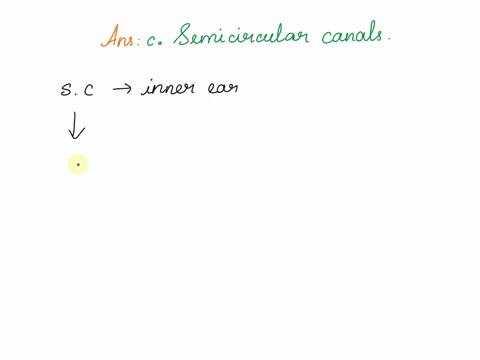 Ans: c. Semicircular canals.
S.C → inner ear
↓